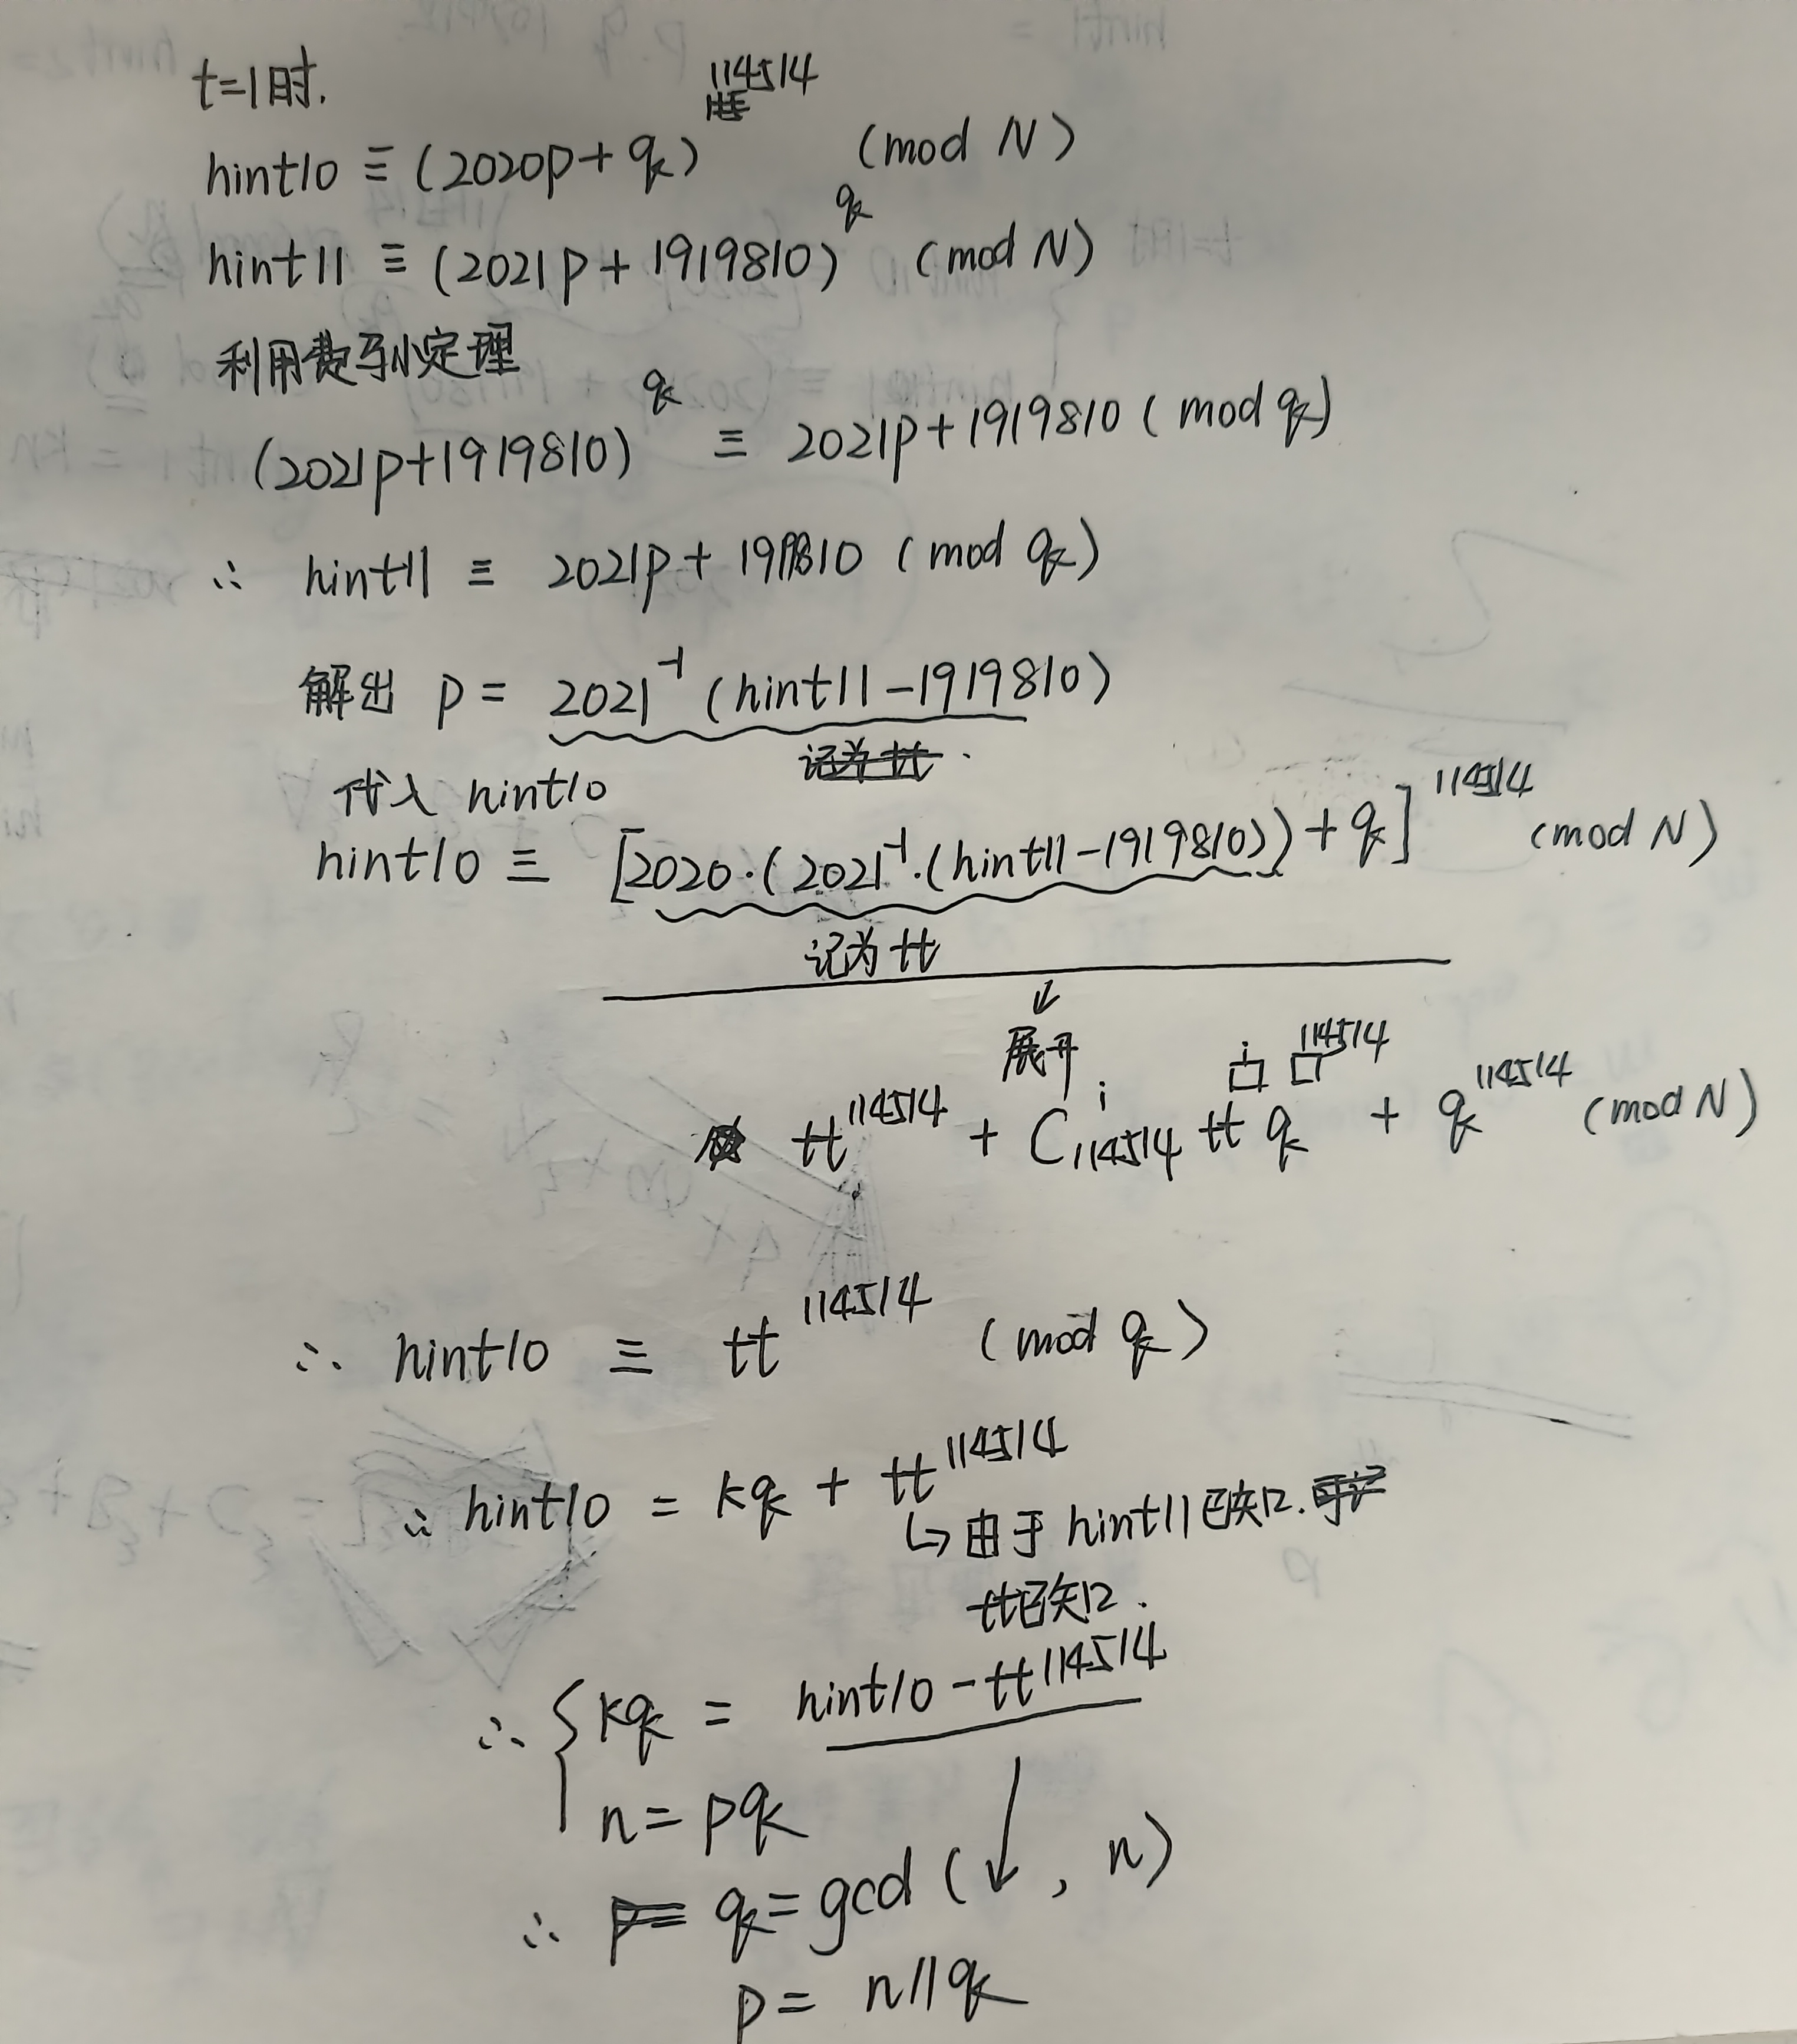 t=1时.
hint10 ≡ (2020p+q)^114514 (mod N)
hint11 ≡ (2021p+1919810)^q (mod N)
利用费马小定理
(2021p+1919810)^q ≡ 2021p+1919810 (mod q)
∴ hint11 ≡ 2021p+1919810 (mod q)
解出 p = 2021^-1 (hint11-1919810)
记为 tt.
代入 hint10
hint10 ≡ [2020·(2021^-1·(hint11-1919810))+q]^114514 (mod N)
记为 tt
↓
展开
tt^114514 + C_114514^i tt^i q^114514 + q^114514 (mod N)
∴ hint10 ≡ tt^114514 (mod q)
∴ hint10 = kq + tt^114514
↳ 由于 hint11 已知.
tt已知.
∴ { kq = hint10 - tt^114514
n = pq
∴ p= q = gcd(↓, n)
p = n//q